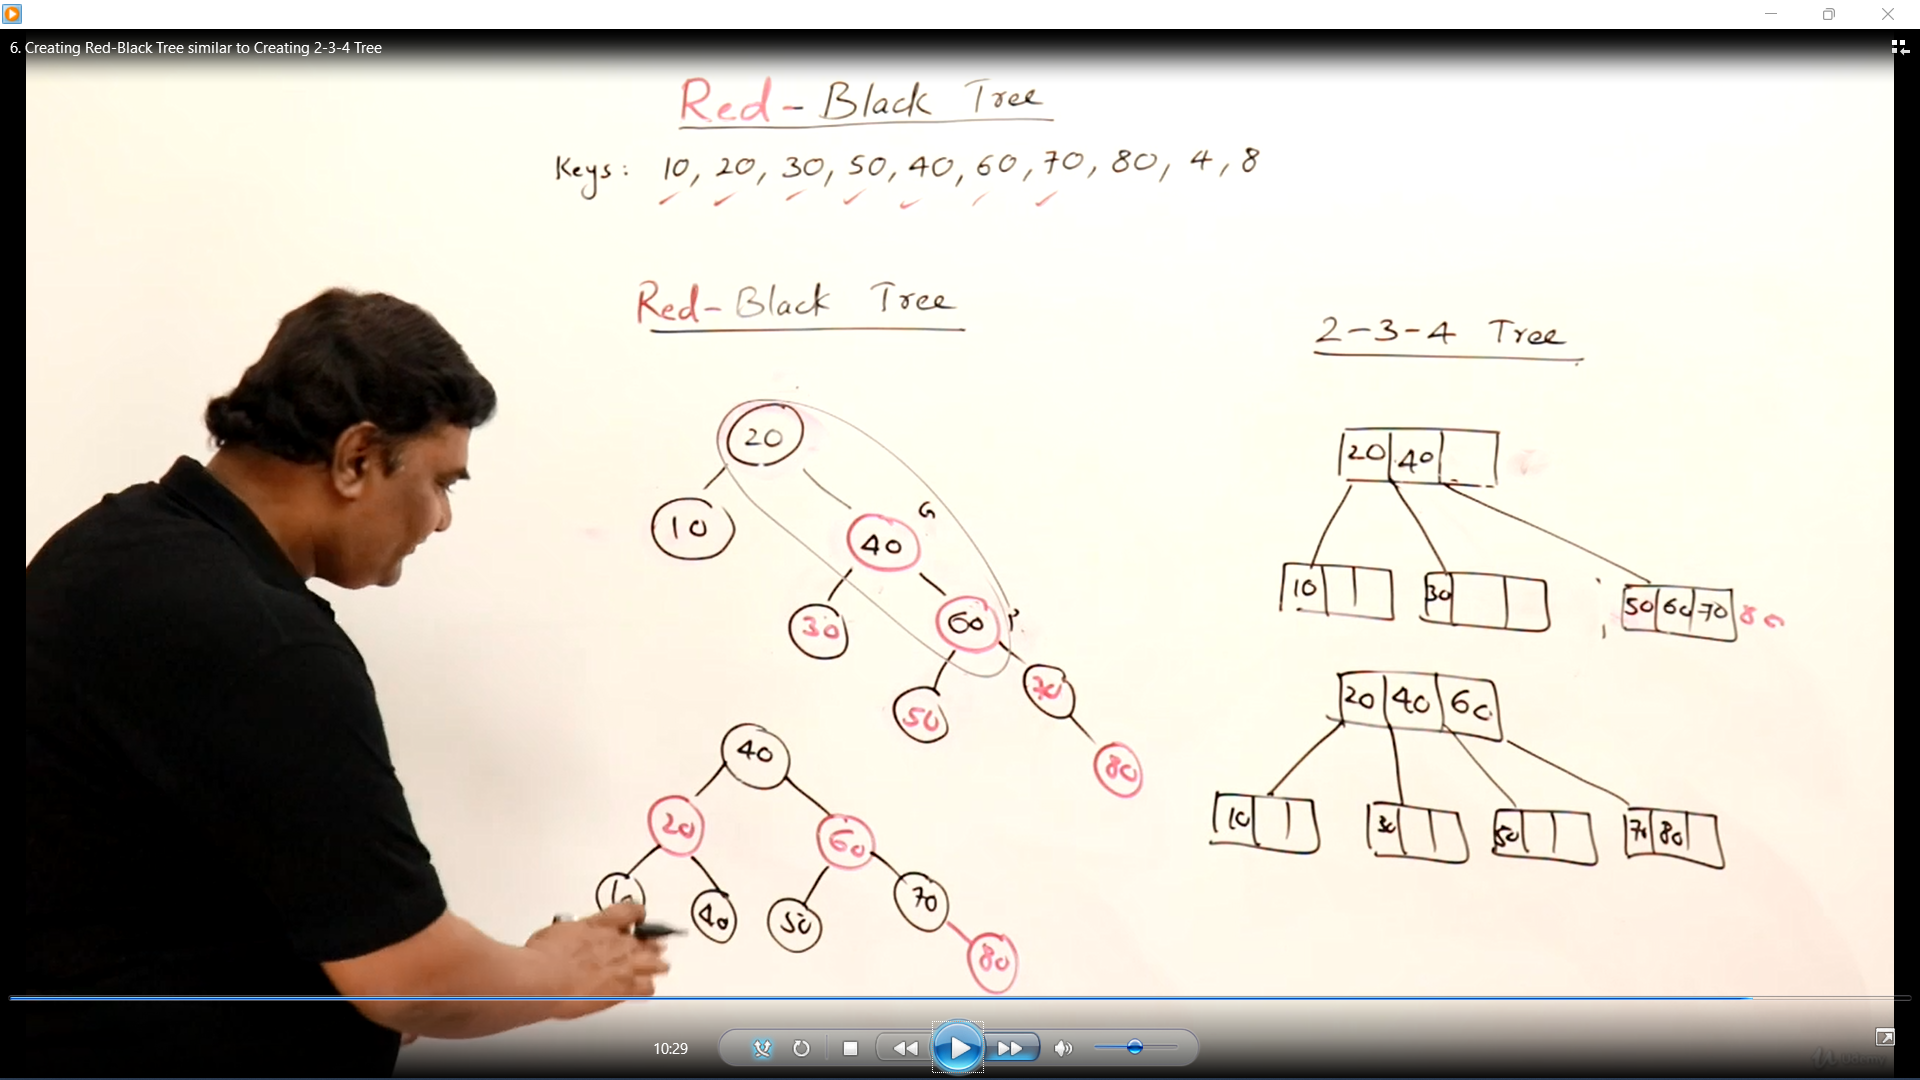 6. Creating Red-Black Tree similar to Creating 2-3-4 Tree
Red-Black Tree
Keys: 10, 20, 30, 50, 40, 60, 70, 80, 4, 8
Red-Black Tree
2-3-4 Tree
20
10
40
G
30
60
P
50
70
80
20 40
10
30
50 60 70 80
40
20
60
10
40
50
70
80
20 40 60
10
30
50
70 80
10:29
Udemy